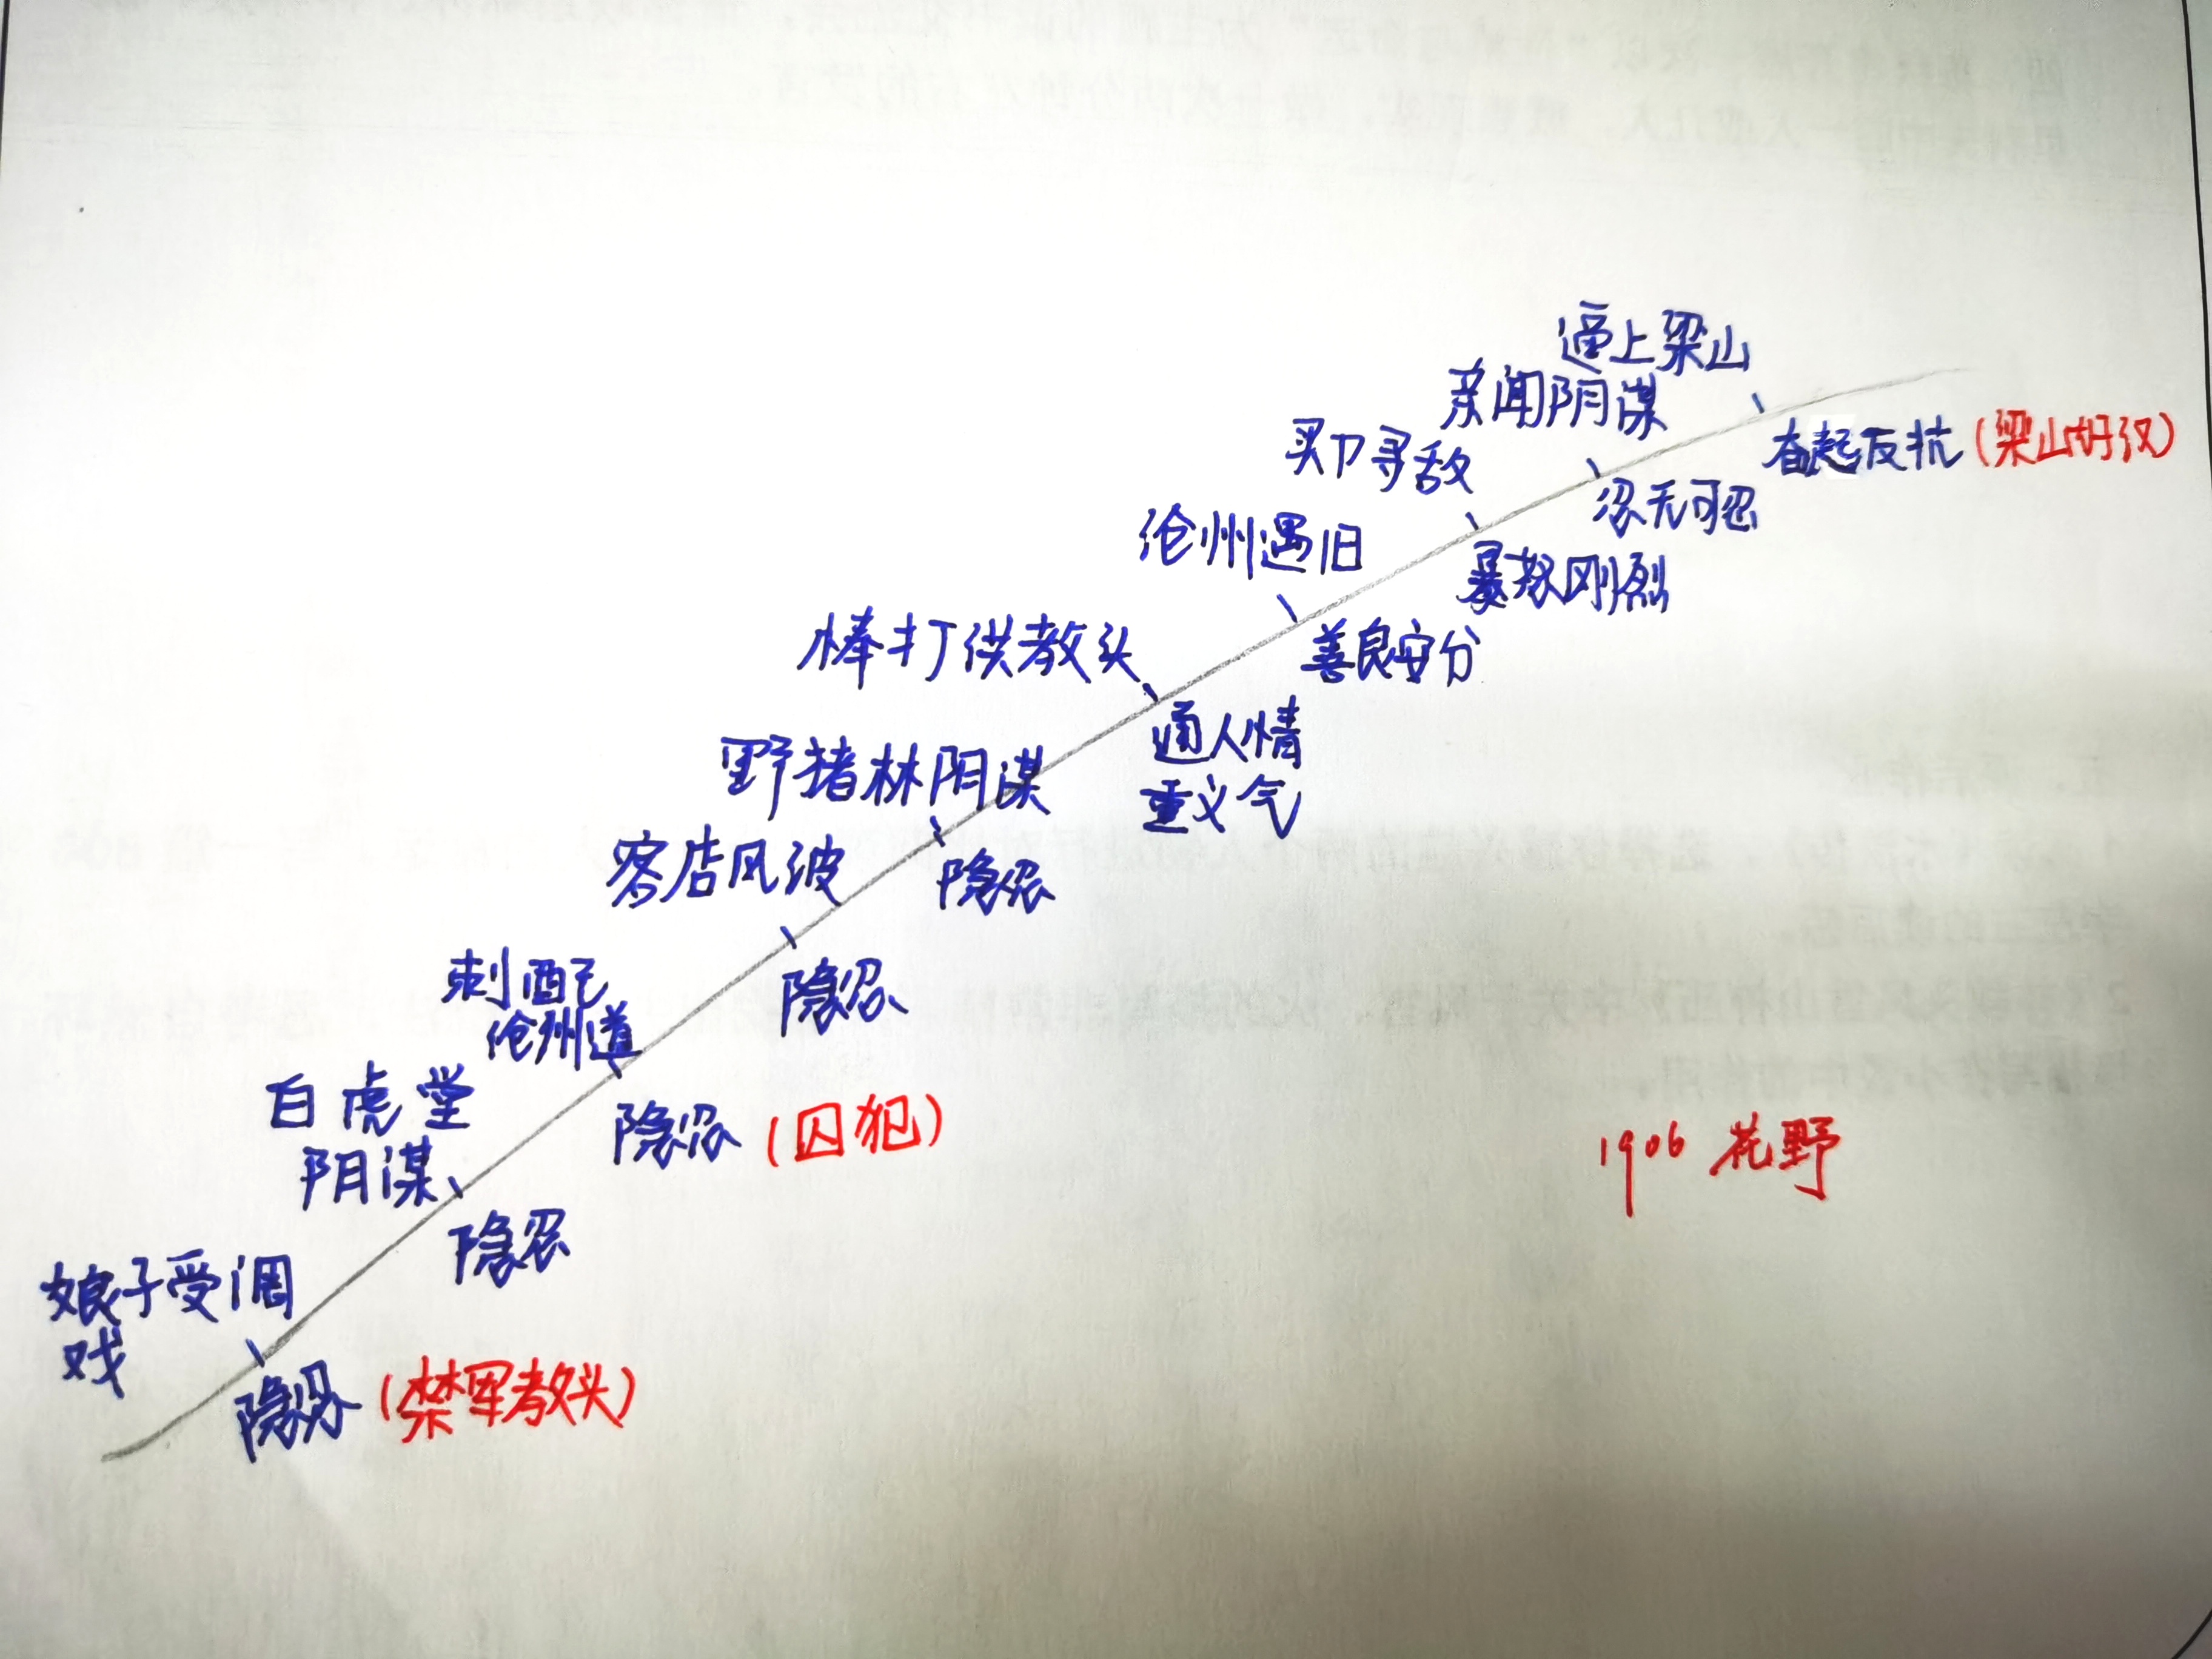 娘子受调
戏
隐忍(禁军教头)
白虎堂
阴谋
隐忍
刺配
沧州道
隐忍(囚犯)
客店风波
隐忍
野猪林阴谋
隐忍
棒打洪教头
通人情
重义气
沧州遇旧
善良安分
买刀寻敌
暴怒刚烈
亲闻阴谋
忍无可忍
逼上梁山
奋起反抗(梁山好汉)
1906 花野